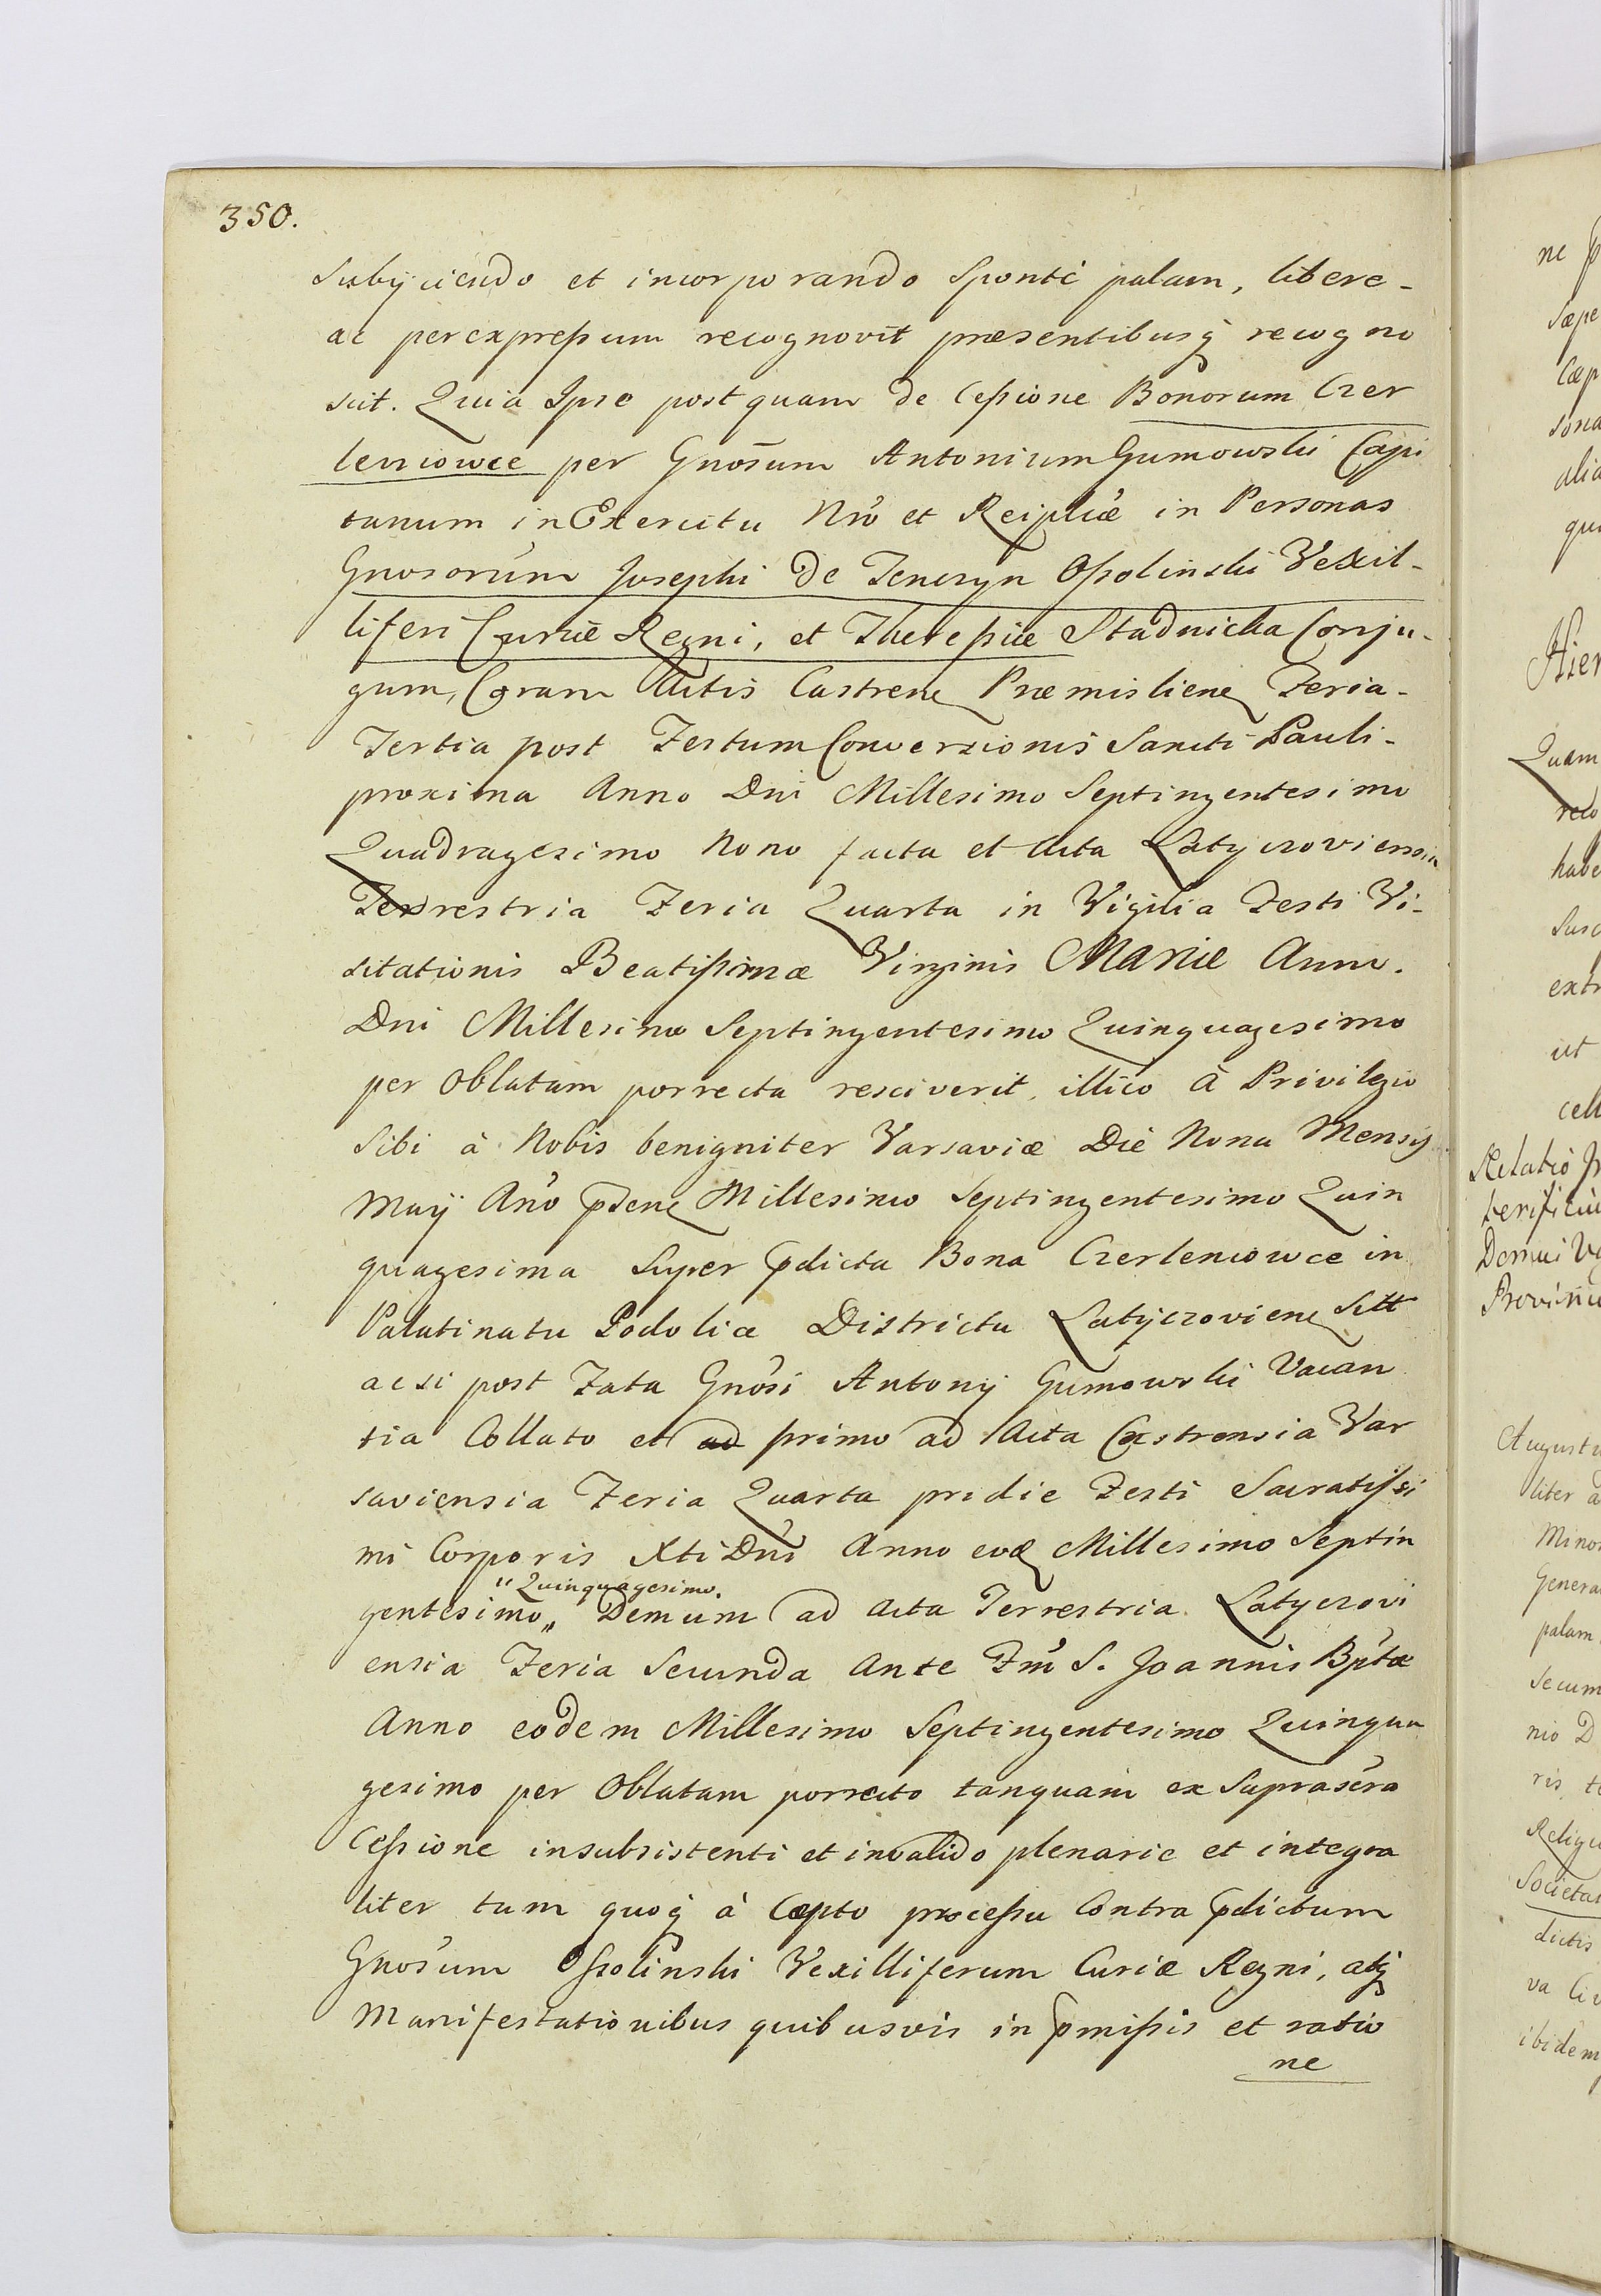 350.
Subijciendo et incorporando Sponte palam, libere-
ac per expressum recognovit praesentibusq recogno
scit. Quia Ipse postquam de Cessione Bonorum Czer
leniowce per Gnosum Antonium Gumowski Capi
taneum in Exercitu Nro et Reiplicae in Personas
Gnosorum Josephi de Tenczyn Ossolinski Vexil-
liferi Curiae Regni, et Theressiae Stadnicka Conju-
gum, Coram Actis Castren Praemislien Feria-
Tertia post Festum Conversionis Sancti Pauli-
proxima Anno Dni Millesimo Septingentesimo
Quadragesimo Nono facta et Acta Latyczoviensia
Terrestria Feria Quarta in Vigilia Festi Vi-
sitationis Beatissimae Virginis Mariae Anno.
Dni Millesimo Septingentesimo Quinquagesimo
per Oblatam porrecta resciverit, illico à Privilegio
Sibi à Nobis benigniter Varsaviae Die Nona Mensis
Maij Ano pden Millesimo Septingentesimo Quin
quagesima Super pdicta Bona Czerleniowce in
Palatinatu Podoliae Districtu Latyczovien Sitt
ac si post Fata Gnosi Antonij Gumowski Vacan
tia Collato et ad primo ad Acta Castrensia Var
saviensia Feria Quarta pridie Festi Sacratissi
mi Corporis Xti Dni Anno eod Millesimo Septin
" Quinquagesimo.
gentesimo " Demum ad Acta Terrestria Latyczovi
ensia Feria Secunda Ante Fm S. Joannis Bptae
Anno eodem Millesimo Septingentesimo Quinqua
gesimo per Oblatam porrecto tanquam ex Suprascra
Cessione insubsistenti et invalido plenarie et integra
liter tum quoq à Caepto processu Contra pdictum
Gnosum Ossolinski Vexilliferum Curiae Regni, atq
Manifestationibus quibusvis in pmissis et ratio
ne